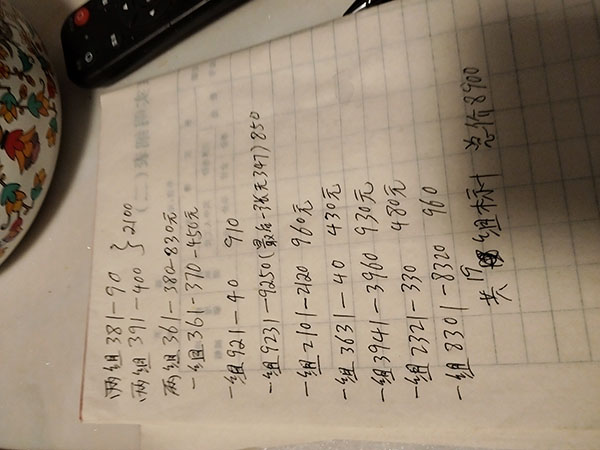 两组 381-90
两组 391-400 } 2100
两组 361-380-830元
一组 361-370-450元
一组 921-40 910
一组 9231-9250(最后一张无347) 850
一组 2101-2120 960元
一组 3631-40 430元
一组 3941-3960 930元
一组 2321-330 480元
一组 8301-8320 960
共 19 组标十 总价8900